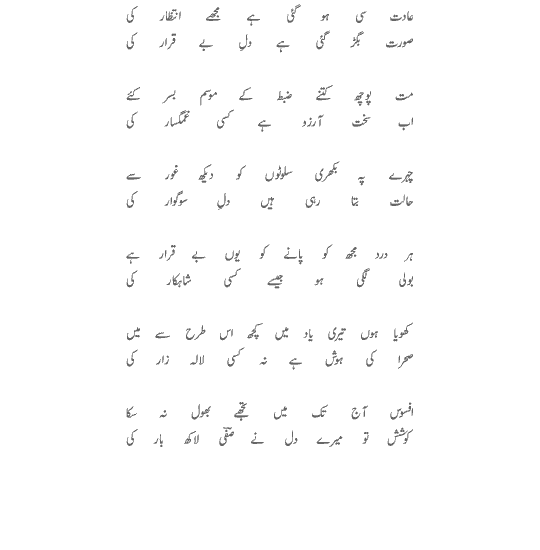 عادت سی ہو گئی ہے مجھے انتظار کی
صورت بگڑ گئی ہے دلِ بے قرار کی
مت پوچھ کتنے ضبط کے موسم بسر کئے
اب سخت آرزو ہے کسی غمگسار کی
چہرے پہ بکھری سلوٹوں کو دیکھ غور سے
حالت بتا رہی ہیں دلِ سوگوار کی
ہر درد مجھ کو پانے کو یوں بے قرار ہے
بولی لگی ہو جیسے کسی شاہکار کی
کھویا ہوں تیری یاد میں کچھ اس طرح سے میں
صحرا کی ہوش ہے نہ کسی لالہ زار کی
افسوس آج تک میں تجھے بھول نہ سکا
کوشش تو میرے دل نے صفیؔ لاکھ بار کی